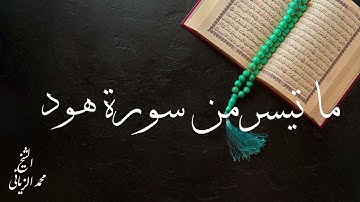 ما تيسر من سورة هود
الشيخ
محمد الزياني